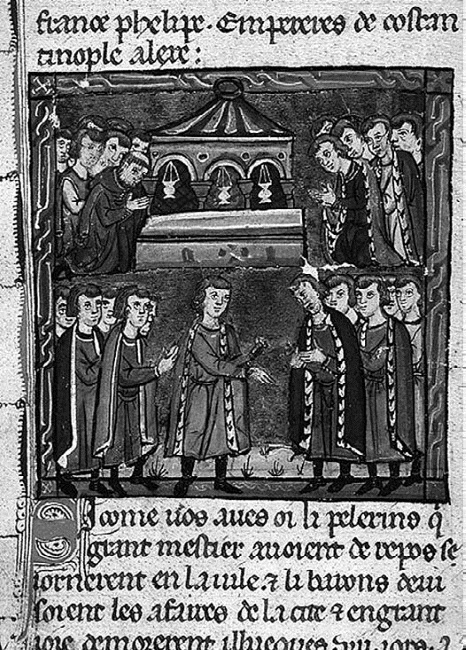 france phelipe. Empereres de costan
tinople alere:
I come uos aues oi li pelerins q
grant mestier auoient de repos se
iornerent en la uile. ⁊ li barons deui
soient les afaires de la cite ⁊ en grant
ioie demorerent illueques .viii. iors.